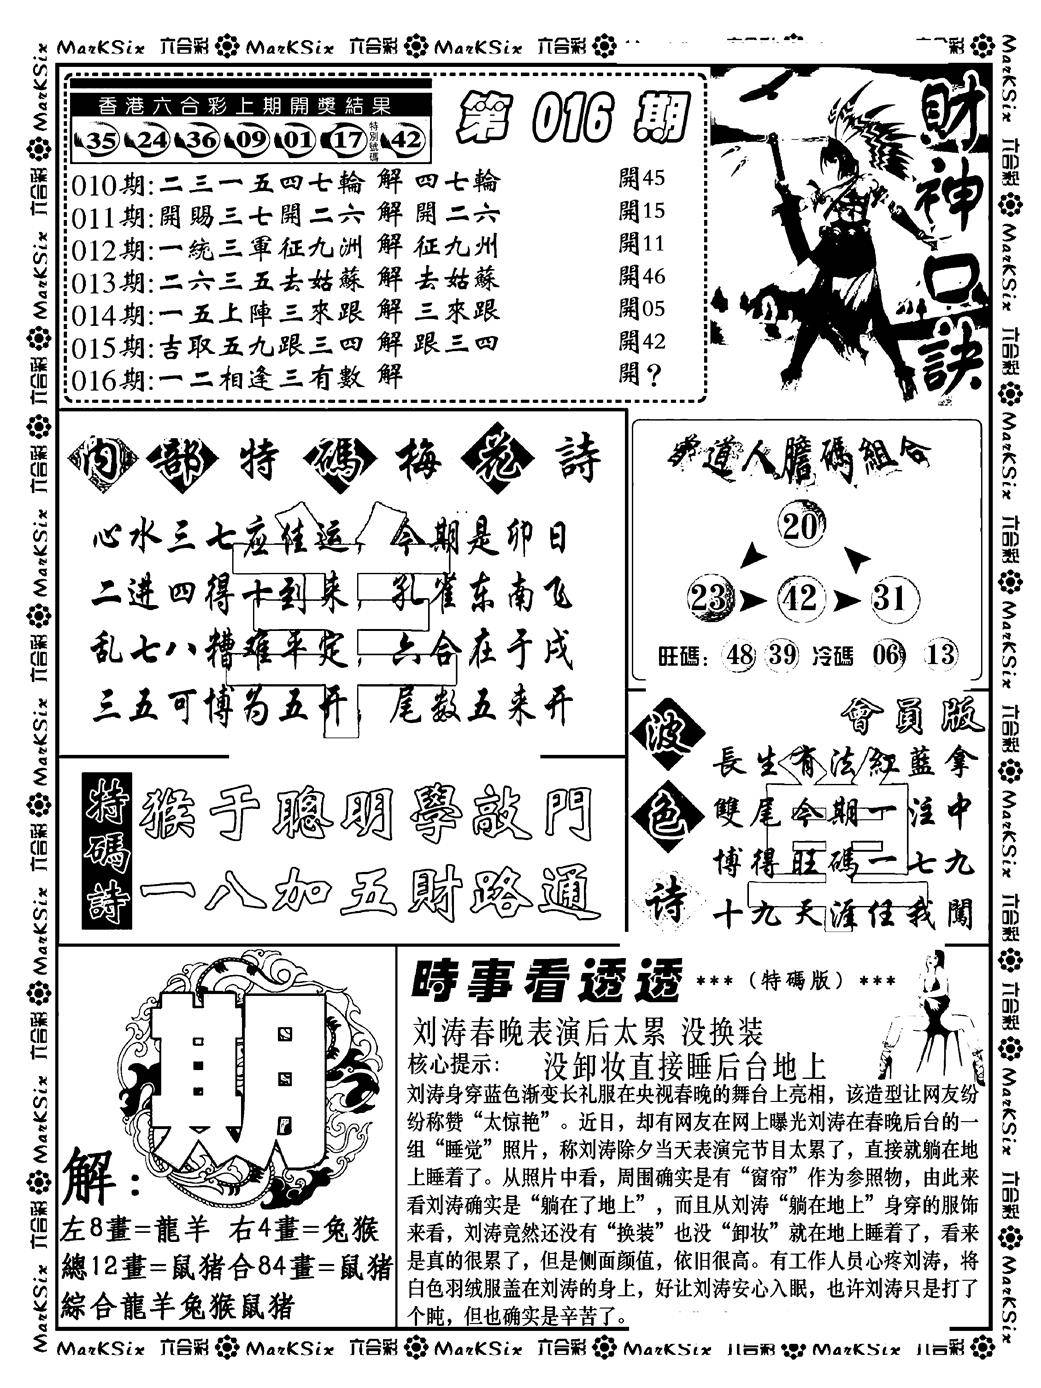 MarKSix 六合彩 MarKSix 六合彩 MarKSix 六合彩
香港六合彩上期開獎結果
35 24 36 09 01 17 特別號碼 42
第 016 期
010期:二三一五四七輪 解 四七輪 開45
011期:開賜三七開二六 解 開二六 開15
012期:一統三軍征九洲 解 征九州 開11
013期:二六三五去姑蘇 解 去姑蘇 開46
014期:一五上陣三來跟 解 三來跟 開05
015期:吉取五九跟三四 解 跟三四 開42
016期:一二相逢三有數 解 開?
財神口訣
內部特碼梅花詩
心水三七应佳运，今期是卯日
二进四得十到来，孔雀东南飞
乱七八糟难平定，六合在于戌
三五可博为五开，尾数五来开
道人膽碼組合
20
23 42 31
旺碼: 48 39 冷碼 06 13
特碼詩
猴于聰明學敲門
一八加五財路通
波色诗
會員版
長生有法紅藍拿
雙尾今期一注中
博得旺碼一七九
十九天涯任我闖
期
解:
左8畫=龍羊 右4畫=兔猴
總12畫=鼠猪合84畫=鼠猪
綜合龍羊兔猴鼠猪
時事看透透 ***（特碼版）***
刘涛春晚表演后太累 没换装
核心提示: 没卸妆直接睡后台地上
刘涛身穿蓝色渐变长礼服在央视春晚的舞台上亮相，该造型让网友纷
纷称赞“太惊艳”。近日，却有网友在网上曝光刘涛在春晚后台的一
组“睡觉”照片，称刘涛除夕当天表演完节目太累了，直接就躺在地
上睡着了。从照片中看，周围确实是有“窗帘”作为参照物，由此来
看刘涛确实是“躺在了地上”，而且从刘涛“躺在地上”身穿的服饰
来看，刘涛竟然还没有“换装”也没“卸妆”就在地上睡着了，看来
是真的很累了，但是侧面颜值，依旧很高。有工作人员心疼刘涛，将
白色羽绒服盖在刘涛的身上，好让刘涛安心入眠，也许刘涛只是打了
个盹，但也确实是辛苦了。
MarKSix 六合彩 MarKSix 六合彩 MarKSix 六合彩 MarKSix 六合彩 MarKSix 六合彩